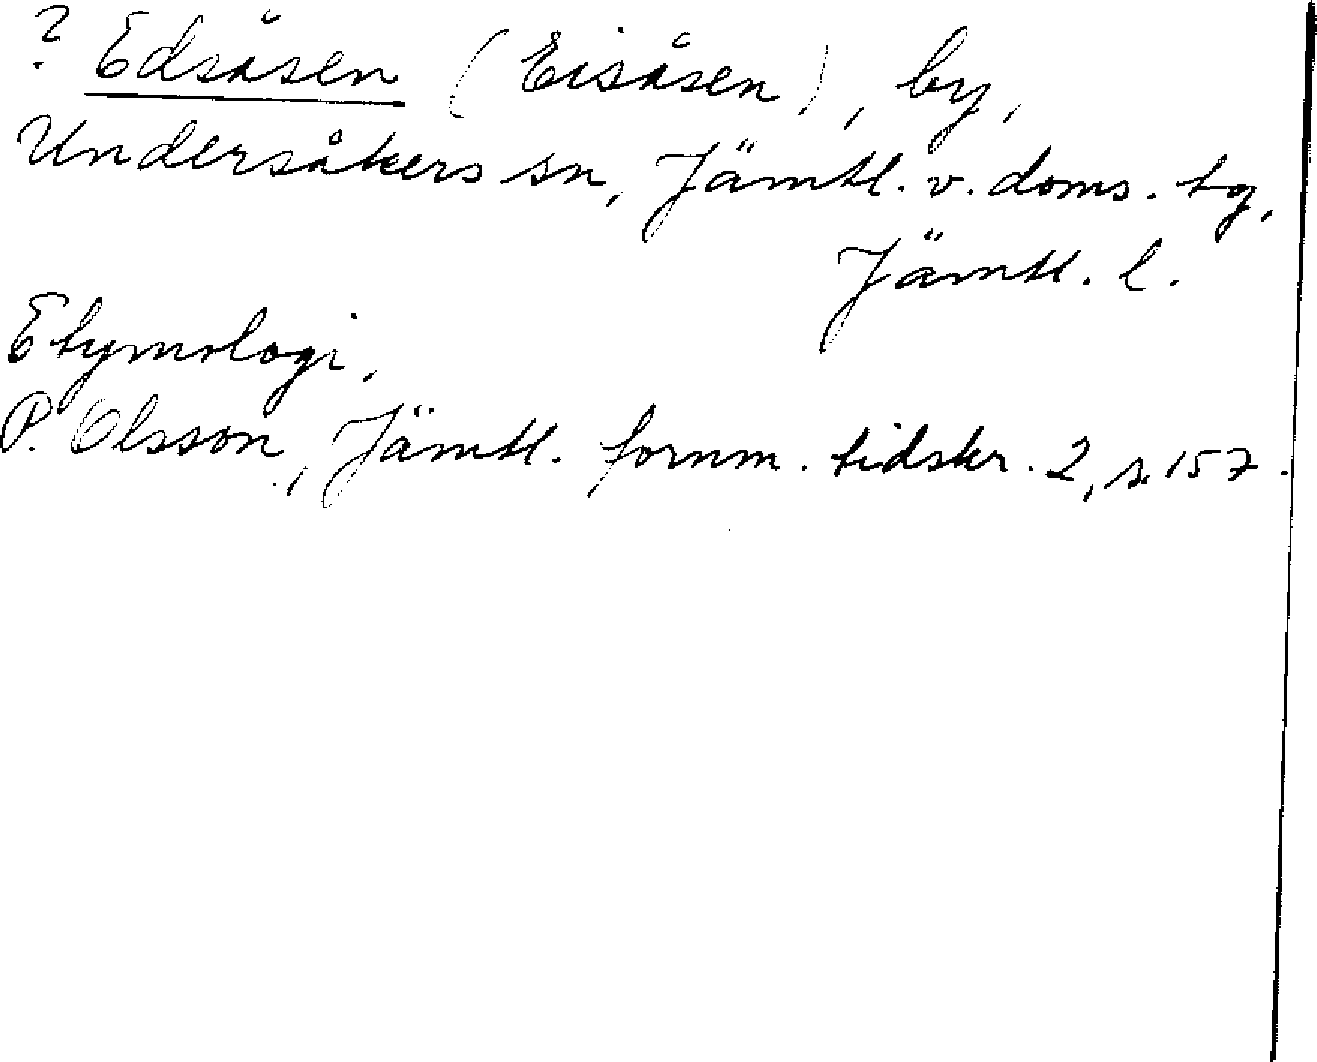 ? Edsåsen (Eisåsen), by,
Undersåkers sn, Jämtl. v. doms. tg,
Jämtl. l.
Etymologi,
P. Olsson, Jämtl. fornm. tidskr. 2, s. 157.